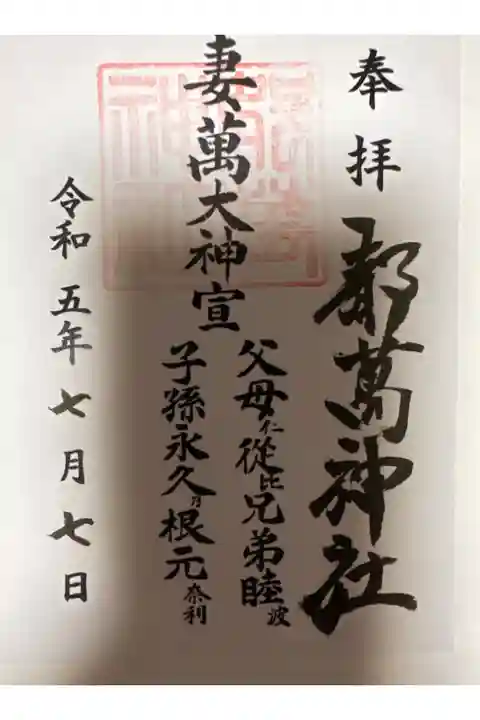 奉拝
都萬神社
妻萬大神宣
父母仁從比兄弟睦波
子孫永久乃根元奈利
令和五年七月七日